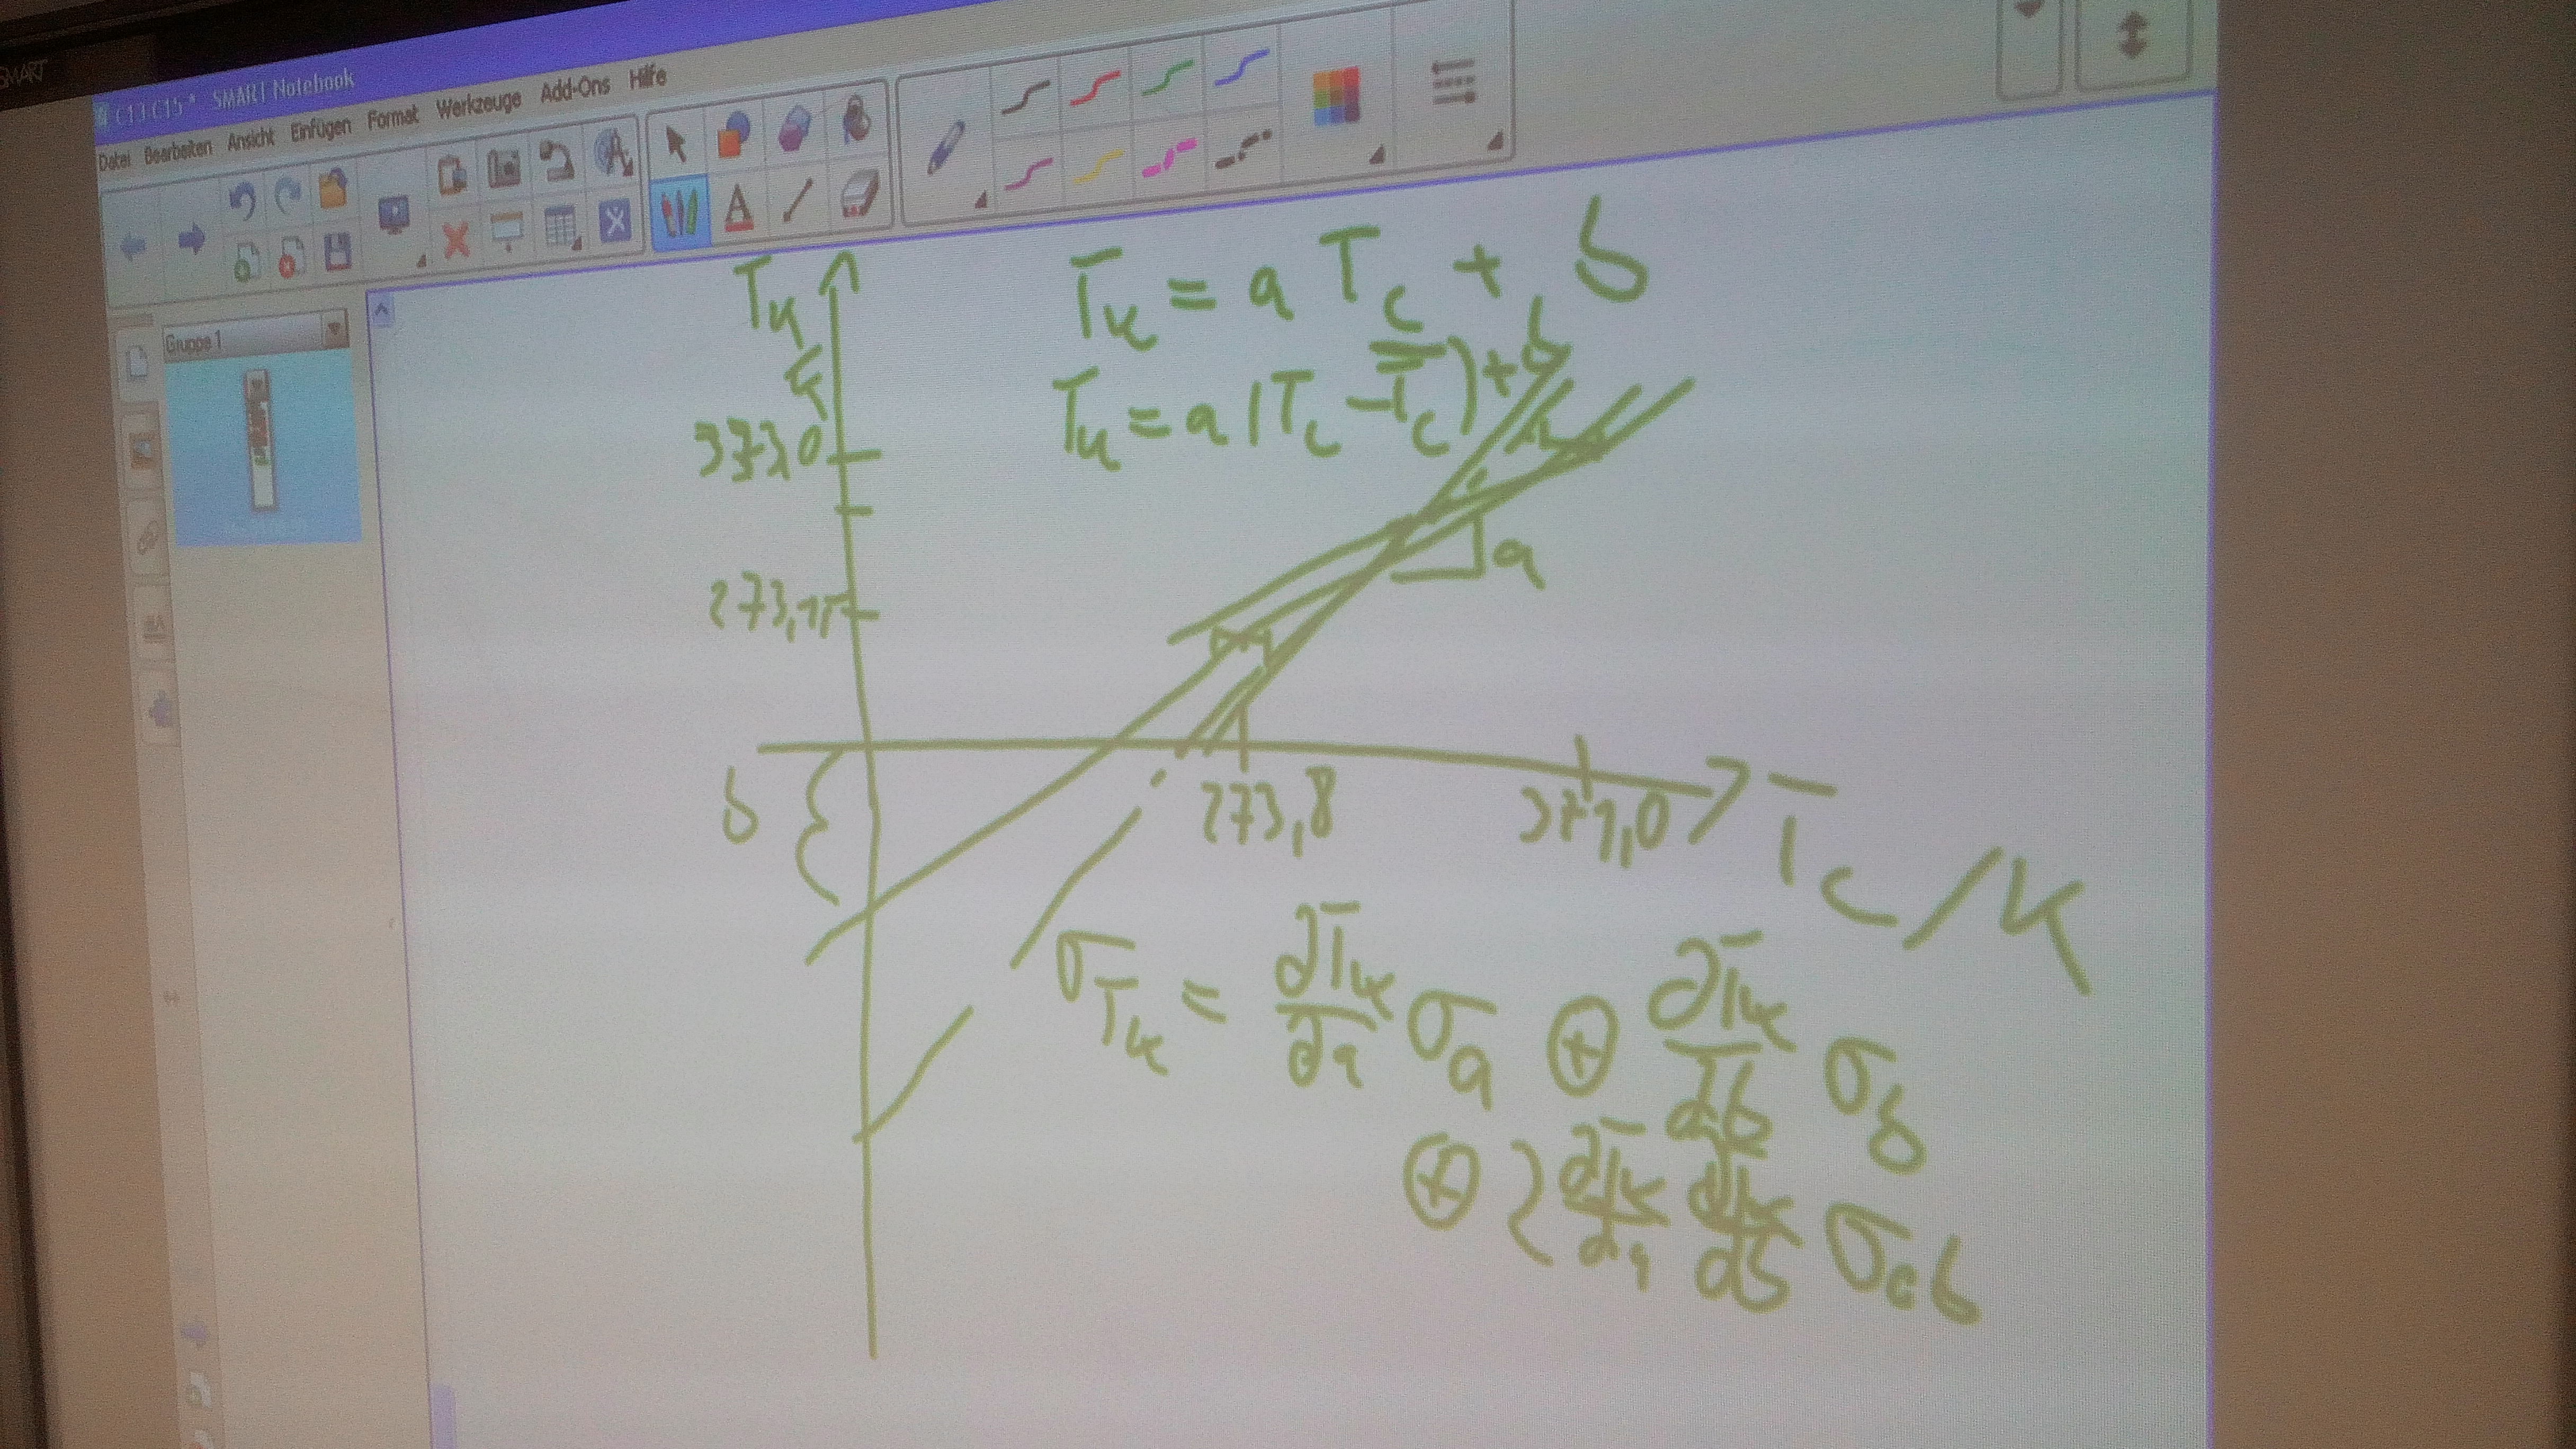 SMART
C13-C15 * SMART Notebook
Datei Bearbeiten Ansicht Einfügen Format Werkzeuge Add-Ons Hilfe
Gruppe 1
T_K = a T_C + b
T_K = a (T_C - \overline{T}_C) + b
T_K
K
373,0
273,15
a
b
273,8
371,0
T_C / K
σ_{T_K} = ∂T_K/∂a σ_a ⊕ ∂T_K/∂b σ_b
⊕ 2 ∂T_K/∂a ∂T_K/∂b σ_{ab}